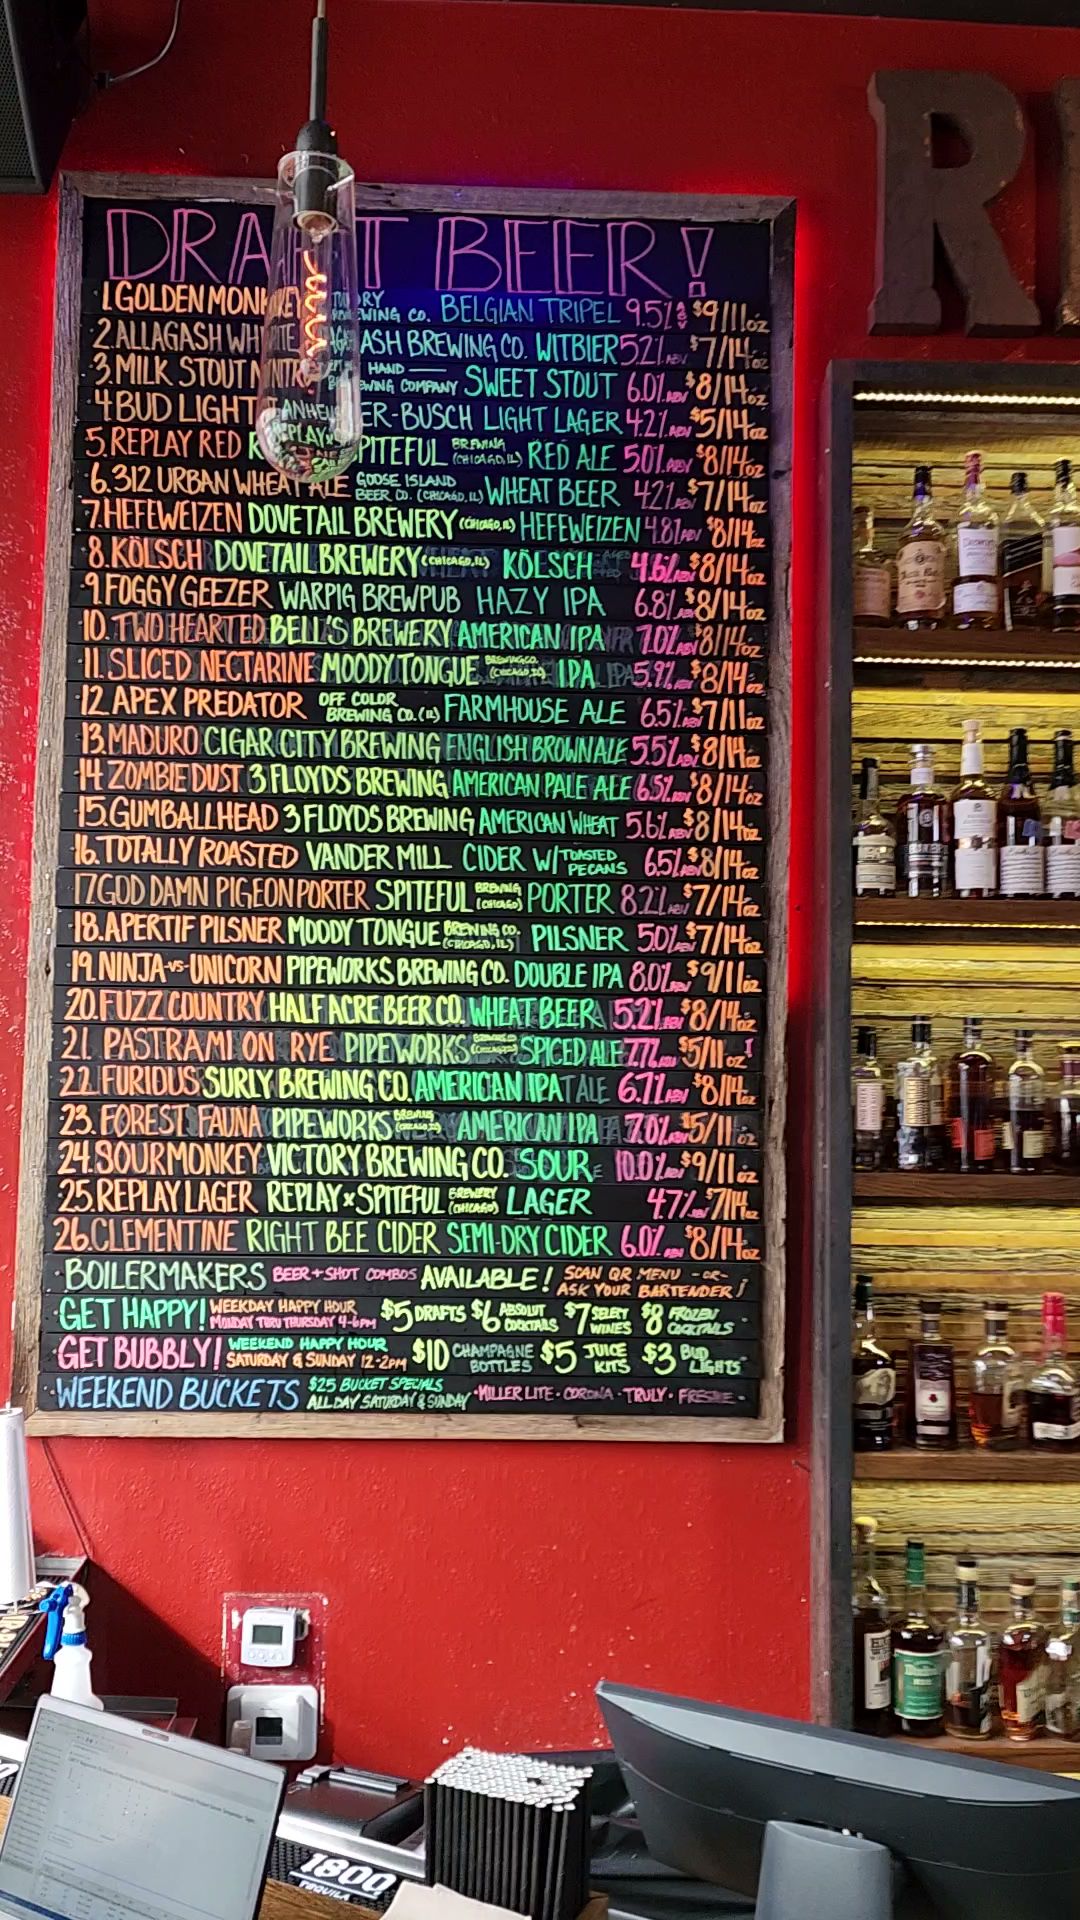 DRAFT BEER!
1. GOLDEN MONKEY BREWING CO. BELGIAN TRIPEL 9.5% ABV $9/11oz
2. ALLAGASH WHITE ALLAGASH BREWING CO. WITBIER 5.2% ABV $7/14oz
3. MILK STOUT NITRO HAND BREWING COMPANY SWEET STOUT 6.0% ABV $8/14oz
4 BUD LIGHT ANHEUSER-BUSCH LIGHT LAGER 4.2% ABV $5/14oz
5. REPLAY RED REPLAY x SPITEFUL BREWING (CHICAGO, IL) RED ALE 5.0% ABV $8/14oz
6. 312 URBAN WHEAT ALE GOOSE ISLAND BEER CO. (CHICAGO, IL) WHEAT BEER 4.2% $7/14oz
7. HEFEWEIZEN DOVETAIL BREWERY (CHICAGO, IL) HEFEWEIZEN 4.8% ABV $8/14oz
8. KÖLSCH DOVETAIL BREWERY (CHICAGO, IL) KÖLSCH 4.6% ABV $8/14oz
9 FOGGY GEEZER WARPIG BREWPUB HAZY IPA 6.8% ABV $8/14oz
10. TWO HEARTED BELL'S BREWERY AMERICAN IPA 7.0% ABV $8/14oz
11. SLICED NECTARINE MOODY TONGUE BREWING CO. (CHICAGO, IL) IPA 5.9% ABV $8/14oz
12. APEX PREDATOR OFF COLOR BREWING CO. (IL) FARMHOUSE ALE 6.5% ABV $7/11oz
13. MADURO CIGAR CITY BREWING ENGLISH BROWN ALE 5.5% ABV $8/14oz
14 ZOMBIE DUST 3 FLOYDS BREWING AMERICAN PALE ALE 6.5% ABV $8/14oz
15. GUMBALLHEAD 3 FLOYDS BREWING AMERICAN WHEAT 5.6% ABV $8/14oz
16. TOTALLY ROASTED VANDER MILL CIDER W/ TOASTED PECANS 6.5% ABV $8/14oz
17. GOD DAMN PIGEON PORTER SPITEFUL BREWING (CHICAGO) PORTER 8.2% ABV $7/14oz
18. APERTIF PILSNER MOODY TONGUE BREWING CO. (CHICAGO, IL) PILSNER 5.0% ABV $7/14oz
19. NINJA-VS-UNICORN PIPEWORKS BREWING CO. DOUBLE IPA 8.0% ABV $9/11oz
20. FUZZ COUNTRY HALF ACRE BEER CO. WHEAT BEER 5.2% ABV $8/14oz
21. PASTRAMI ON RYE PIPEWORKS SPICED ALE 7.7% ABV $5/11oz!
22. FURIOUS SURLY BREWING CO. AMERICAN IPA 6.7% ABV $8/14oz
23. FOREST FAUNA PIPEWORKS BREWING (CHICAGO, IL) AMERICAN IPA 7.0% ABV $5/11oz
24. SOUR MONKEY VICTORY BREWING CO. SOUR 10.0% ABV $9/11oz
25. REPLAY LAGER REPLAY x SPITEFUL BREWERY (CHICAGO) LAGER 4.7% ABV $7/14oz
26. CLEMENTINE RIGHT BEE CIDER SEMI-DRY CIDER 6.0% ABV $8/14oz
·BOILERMAKERS BEER + SHOT COMBOS AVAILABLE! SCAN QR MENU -OR- ASK YOUR BARTENDER!
·GET HAPPY! WEEKDAY HAPPY HOUR MONDAY THRU THURSDAY 4-6PM $5 DRAFTS $6 ABSOLUT COCKTAILS $7 SELECT WINES $8 FROZEN COCKTAILS
·GET BUBBLY! WEEKEND HAPPY HOUR SATURDAY & SUNDAY 12-2PM $10 CHAMPAGNE BOTTLES $5 JUICE KITS $3 BUD LIGHTS
·WEEKEND BUCKETS $25 BUCKET SPECIALS ALL DAY SATURDAY & SUNDAY ·MILLER LITE · CORONA · TRULY ·
R
1800
TEQUILA